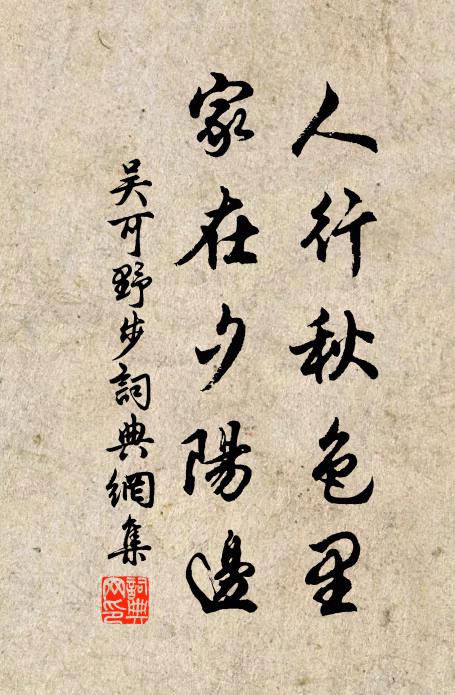 人行秋色里
家在夕陽邊
吴可野步詞典網集
詞典網印